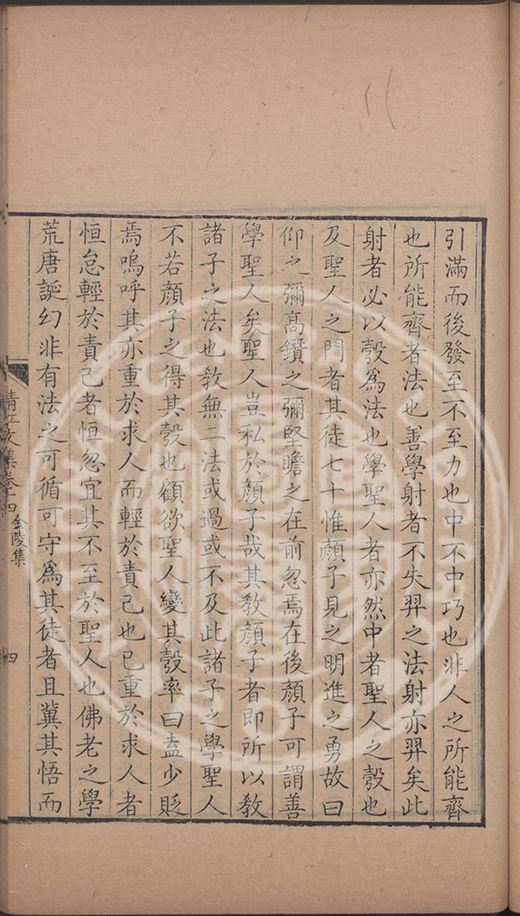 引滿而後發至不至力也中不中巧也非人之所能齊
也所能齊者法也善學射者不失羿之法射亦羿矣此
射者必以彀爲法也學聖人者亦然中者聖人之彀也
及聖人之門者其徒七十惟顏子見之明進之勇故曰
仰之彌高鑽之彌堅瞻之在前忽焉在後顏子可謂善
學聖人矣聖人豈私於顏子哉其教顏子者即所以教
諸子之法也教無二法或過或不及此諸子之學聖人
不若顏子之得其彀也顧欲聖人變其彀率曰盍少貶
焉嗚呼其亦重於求人而輕於責己也已重於求人者
恒怠輕於責己者恒忽宜其不至於聖人也佛老之學
荒唐誕幻非有法之可循可守爲其徒者且冀其悟而
清江文集卷十四 金陵集 四